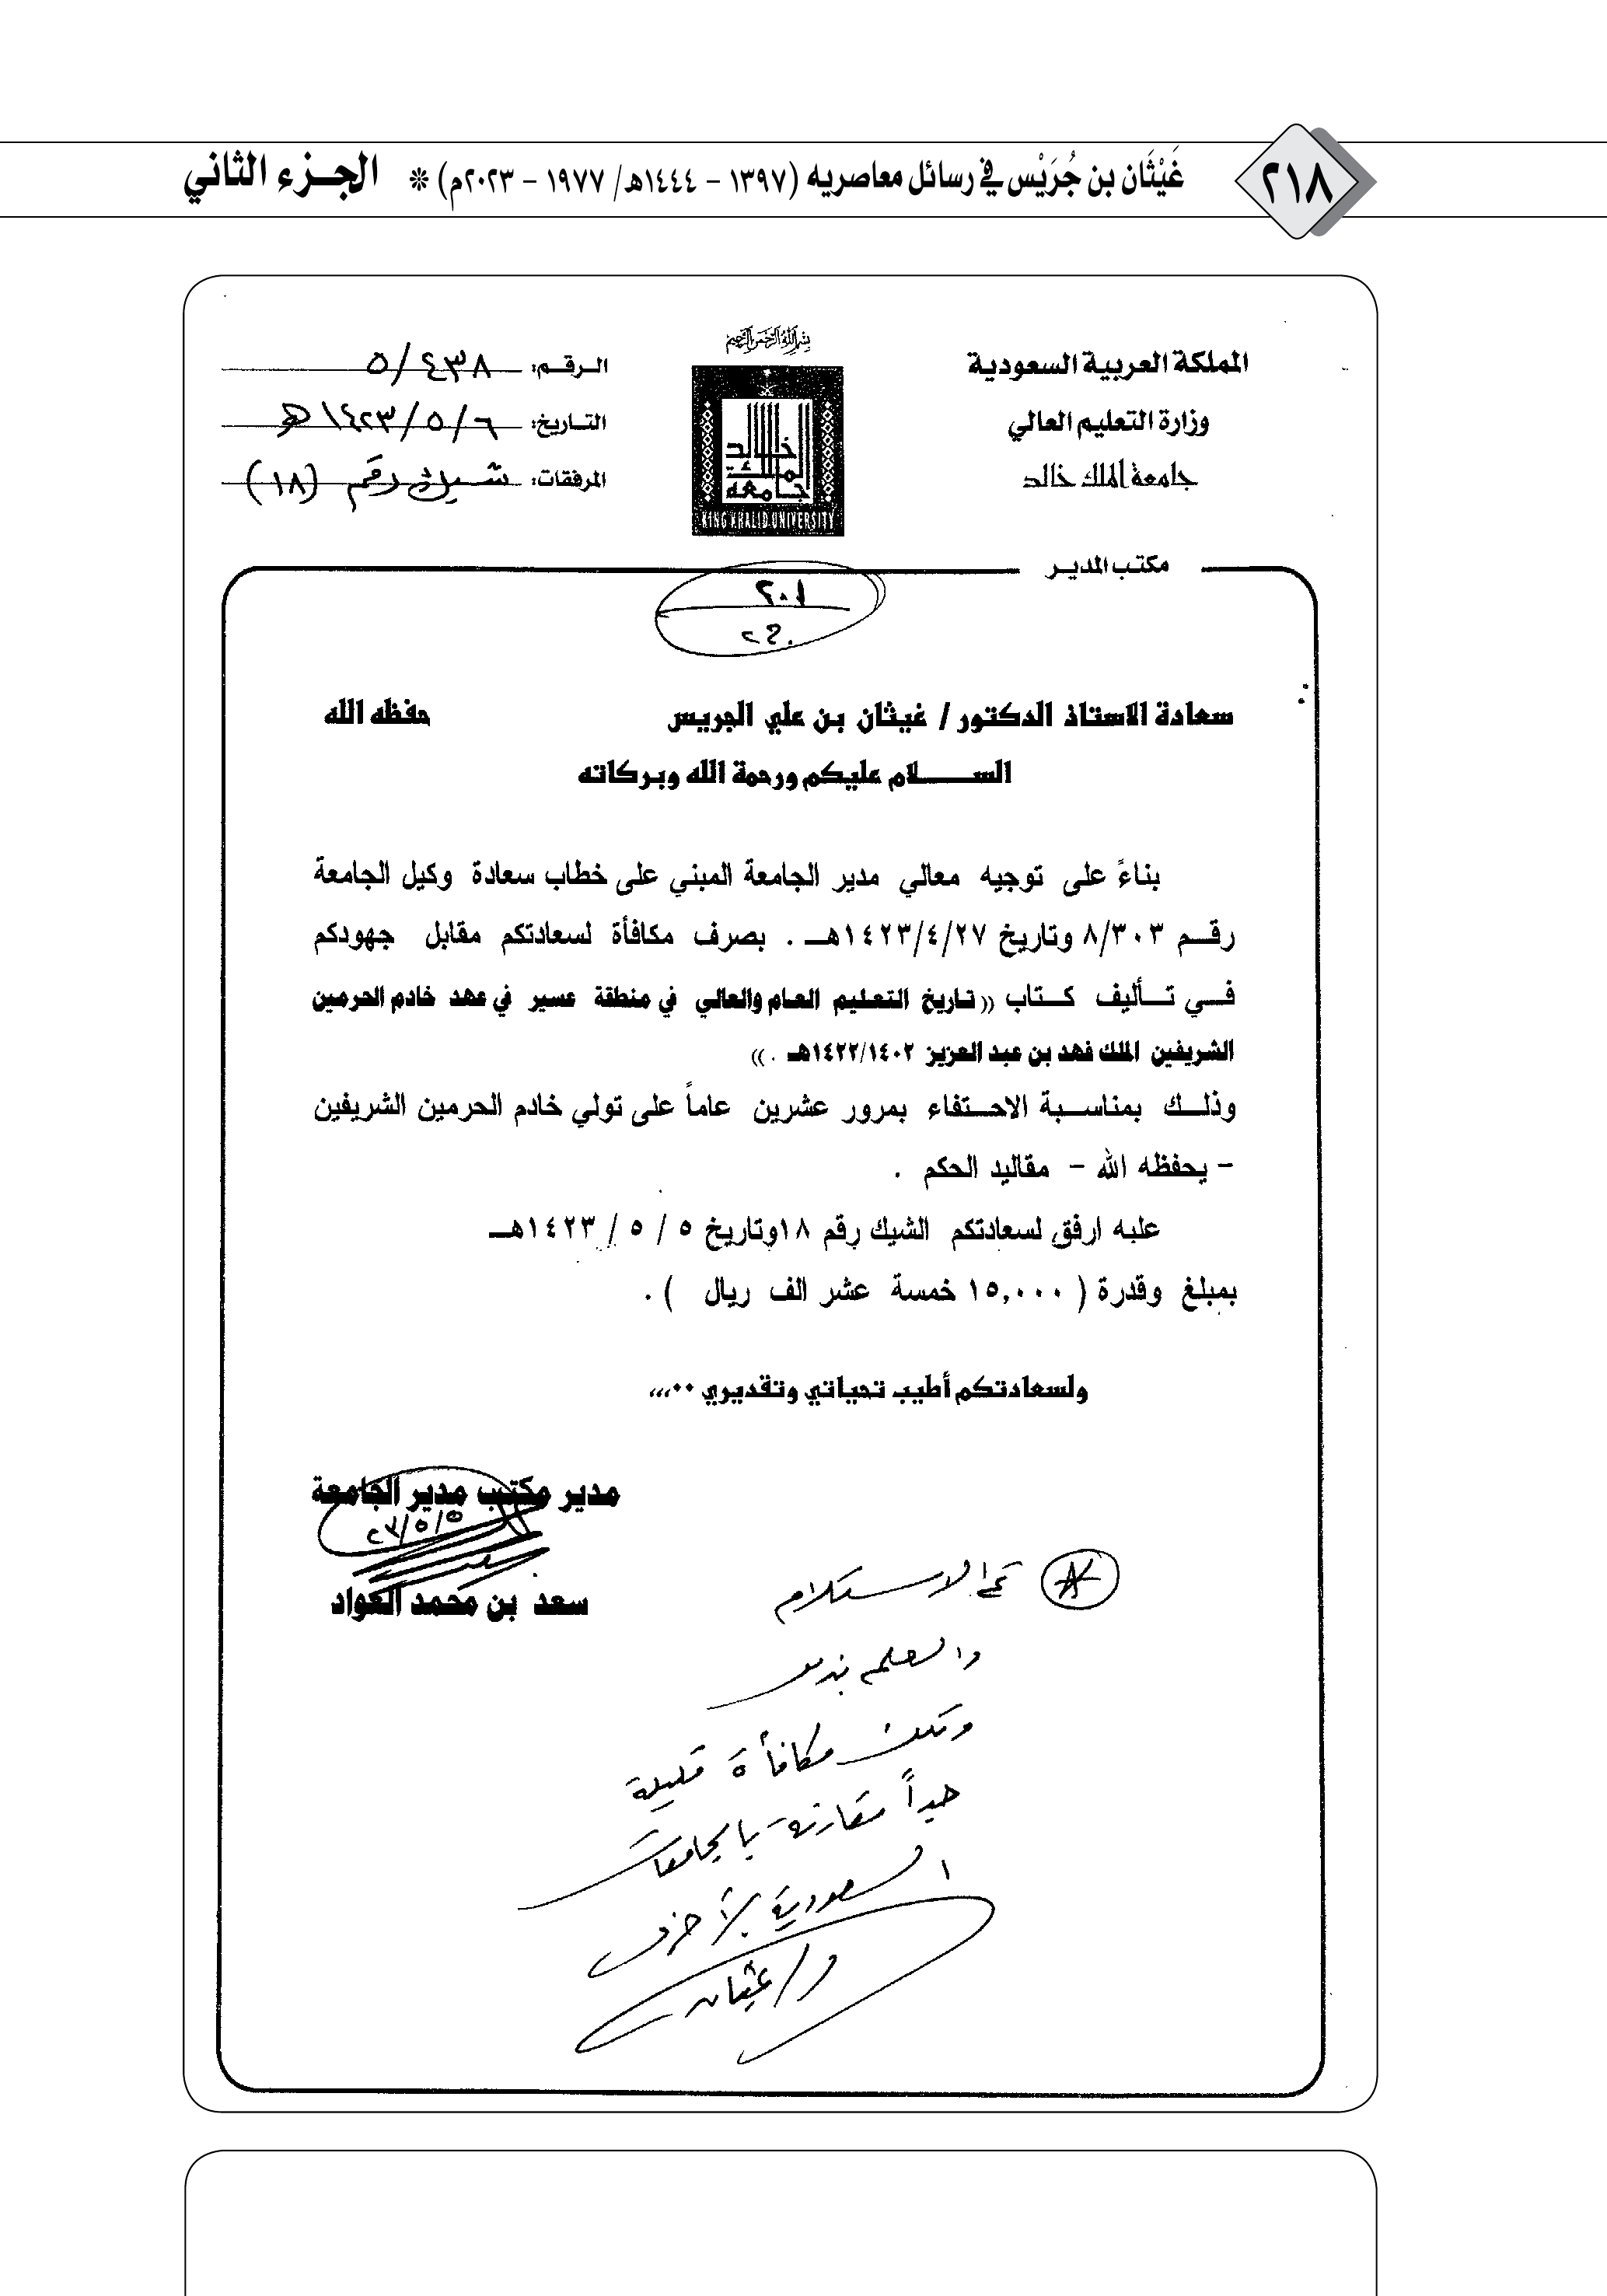 ٢١٨
غَيْثَان بن جُرَيْس في رسائل معاصريه (١٣٩٧ - ١٤٤٤هـ/ ١٩٧٧ - ٢٠٢٣م) * الجـزء الثاني
بسم الله الرحمن الرحيم
المملكة العربية السعودية
وزارة التعليم العالي
جامعة الملك خالد
خالد
الملك
جامعة
KING KHALID UNIVERSITY
الـرقـم: ٥/٤٣٨
التـاريخ: ١٤٢٣/٥/٦هـ
المرفقات: شيك رقم (١٨)
مكتب المديـر
٢٠١
سعادة الاستاذ الدكتور / غيثان بن علي الجريس حفظه الله
الســـــلام عليكم ورحمة الله وبركاته
بناءً على توجيه معالي مدير الجامعة المبني على خطاب سعادة وكيل الجامعة
رقــم ٨/٣٠٣ وتاريخ ١٤٢٣/٤/٢٧هــ . بصرف مكافأة لسعادتكم مقابل جهودكم
فــي تــأليف كــتاب (( تاريخ التعليم العام والعالي في منطقة عسير في عهد خادم الحرمين
الشريفين الملك فهد بن عبد العزيز ١٤٢٢/١٤٠٢هـ . ))
وذلــك بمناســبة الاحــتفاء بمرور عشرين عاماً على تولي خادم الحرمين الشريفين
- يحفظه الله - مقاليد الحكم .
عليه ارفق لسعادتكم الشيك رقم ١٨وتاريخ ٥ / ٥ / ١٤٢٣هــ
بمبلغ وقدرة ( ١٥,٠٠٠ خمسة عشر الف ريال ) .
ولسعادتكم أطيب تحياتي وتقديري ٠٠،،،
مدير مكتب مدير الجامعة
٢٣/٥/٥
سعد بن محمد العواد
تم الاستلام
وتلك مكافأة قليلة
جداً مقارنة بالجامعات
السعودية الأخرى
د/ غيثان